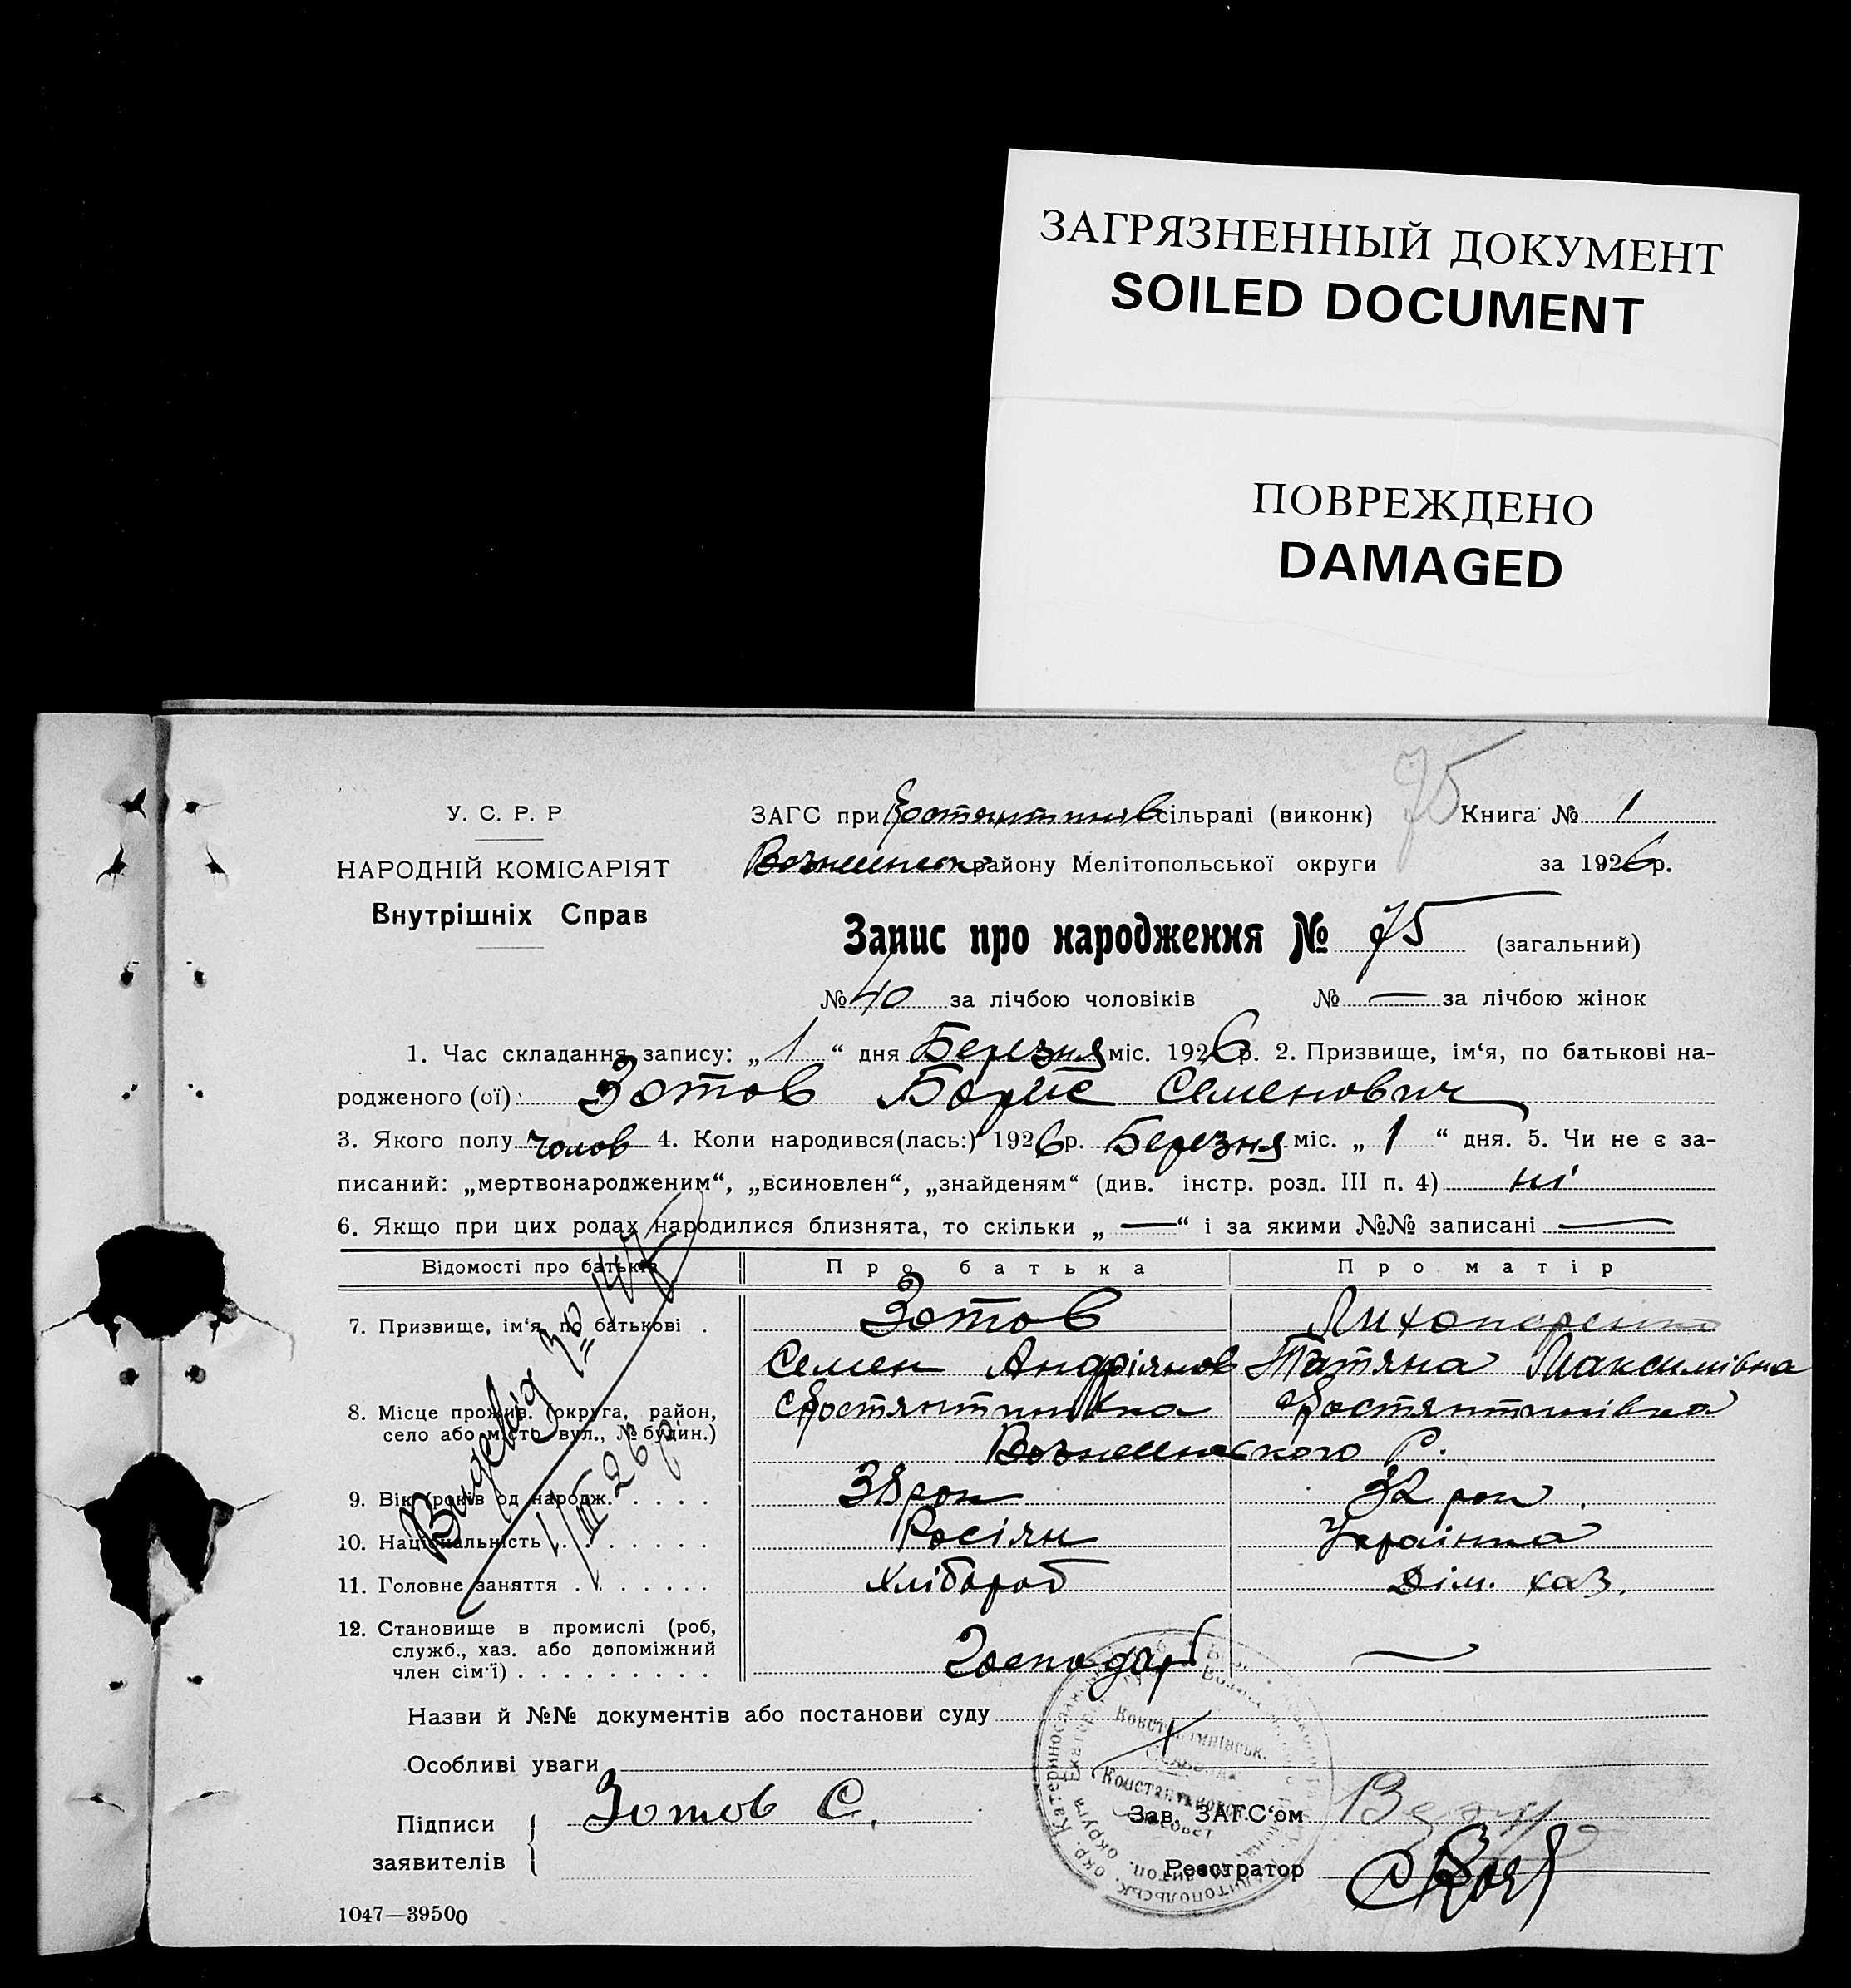 ЗАГРЯЗНЕННЫЙ ДОКУМЕНТ
SOILED DOCUMENT
ПОВРЕЖДЕНО
DAMAGED
75
У. С. Р. Р.
ЗАГС при Костянтинів сільраді (виконк) Книга № 1
НАРОДНІЙ КОМІСАРІЯТ
району Мелітопольської округи за 1926 р.
Внутрішніх Справ
Запис про народження № 75 (загальний)
№ 40 за лічбою чоловіків № — за лічбою жінок
1. Час складання запису: „ 1 “ дня Березня міс. 1926 р. 2. Призвище, ім‘я, по батькові на-
родженого (ої): Зотов Борис Семенович
3. Якого полу чолов 4. Коли народився(лась:) 1926 р. Березня міс. „ 1 “ дня. 5. Чи не є за-
писаний: „мертвонародженим“, „всиновлен“, „знайденям“ (див. інстр. розд. III п. 4) ні
6. Якщо при цих родах народилися близнята, то скільки „ — “ і за якими №№ записані —
Відомості про батьків Про батька Про матір
7. Призвище, ім‘я, по батькові . Зотов
Семен Андріянов Татяна Максимівна
8. Місце прожив. (округа, район, Костянтинівка Костянтинівка
село або місто вул., № будин.)
Вознесенського Р.
9. Вік (років од народж. . . . . 38 рок 32 рок
10. Національність . . . . . . . Росіян Українка
11. Головне заняття . . . . . . . Хлібороб Дім. хаз.
12. Становище в промислі (роб,
служб., хаз. або допоміжний
член сім‘ї) . . . . . . . . . Господарь —
Назви й №№ документів або постанови суду
Особливі уваги
Підписи заявителів Зотов С.
Зав. ЗАГС‘ом
Реєстратор
1047—39500